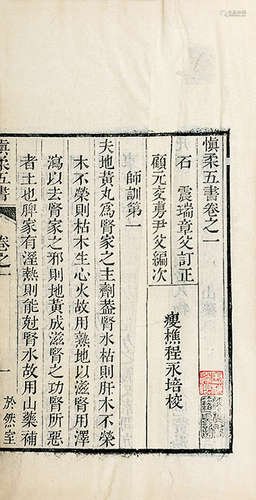 慎柔五書卷之一
石　震瑞章父訂正
顧元交旉尹父編次
瘦樵程永培校
師訓第一
夫地黃丸爲腎家之主劑蓋腎水枯則肝木不榮
木不榮則枯木生心火故用熟地以滋腎水用澤
瀉以去腎家之邪則地黃成滋腎之功腎所惡
者土也脾家有溼熱則能尅腎水故用山藥補
慎柔五書
卷之一
一
於然室